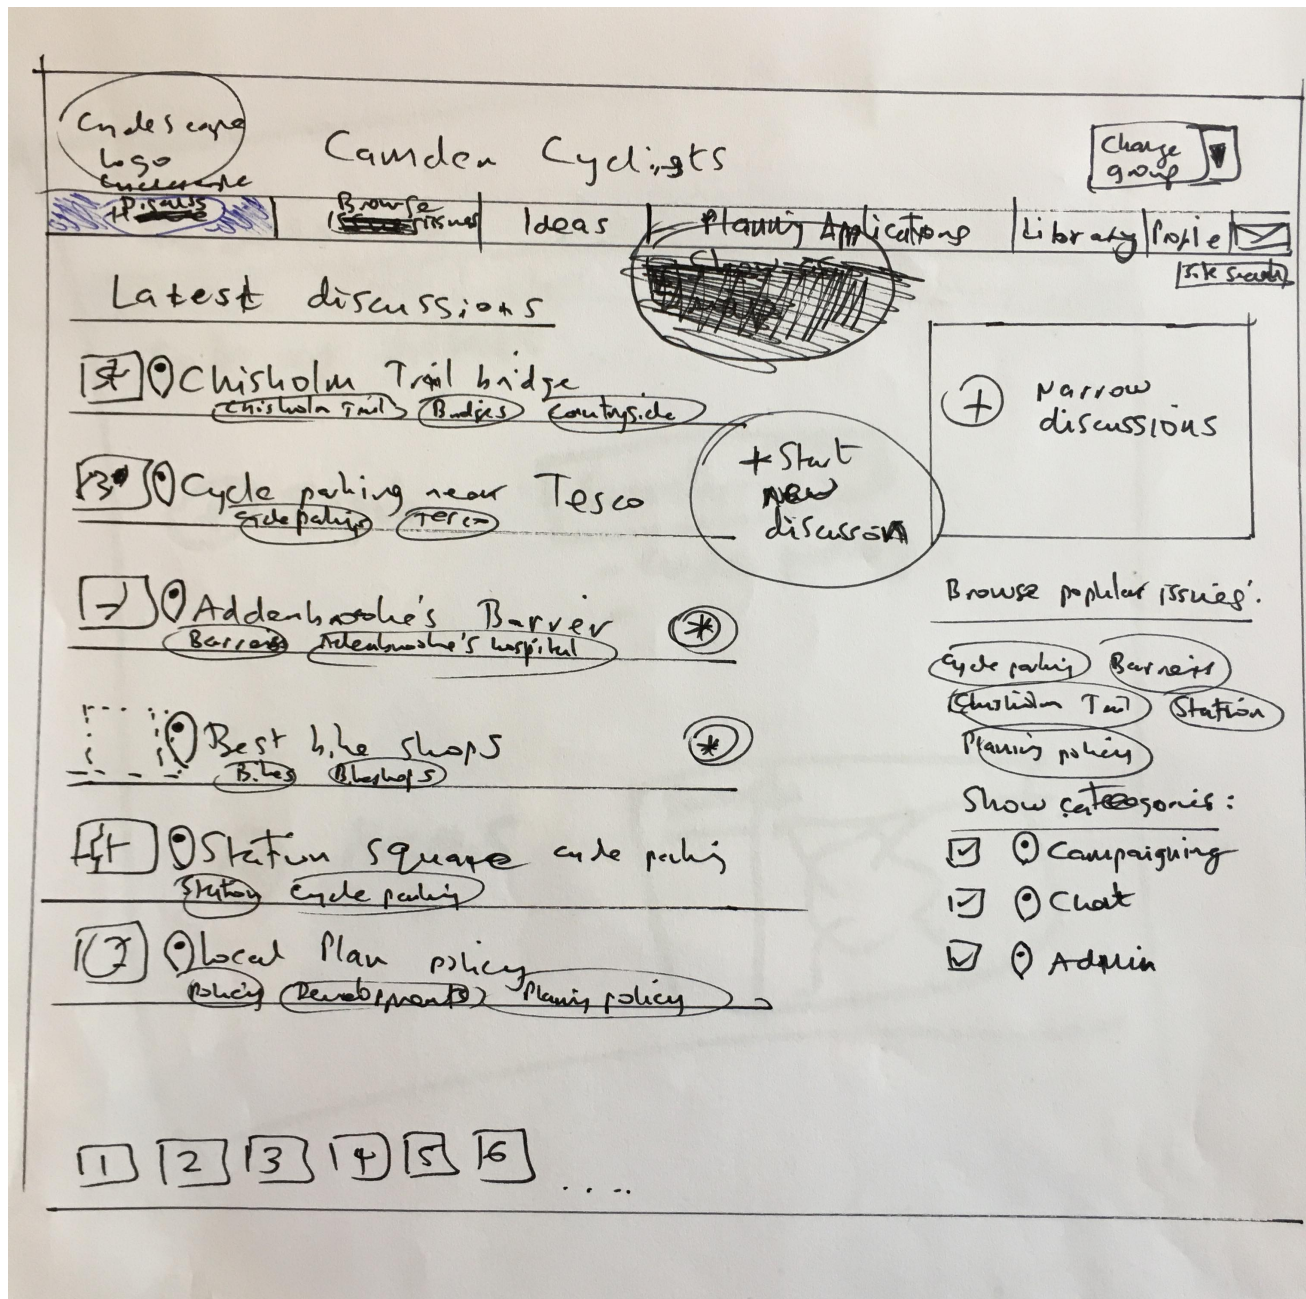 Cyclescape
Logo
Camden Cyclists
Change
group
Discuss
Browse
issues
Ideas
Planning Applications
Library
Profile
Site search
Latest discussions
Chisholm Trail bridge
Chisholm Trail
Bridges
Countryside
Cycle parking near Tesco
Cycle parking
Tesco
Addenbrooke's Barrier
Barriers
Addenbrooke's hospital
Best bike shops
Bikes
Bikeshops
Station square cycle parking
Station
Cycle parking
Local Plan policy
policy
Developments
Planning policy
1 2 3 4 5 6 ....
+ Start
new
discussion
+ Narrow
discussions
Browse popular issues:
Cycle parking
Barriers
Chisholm Trail
Station
Planning policy
Show categories:
Campaigning
Chat
Admin